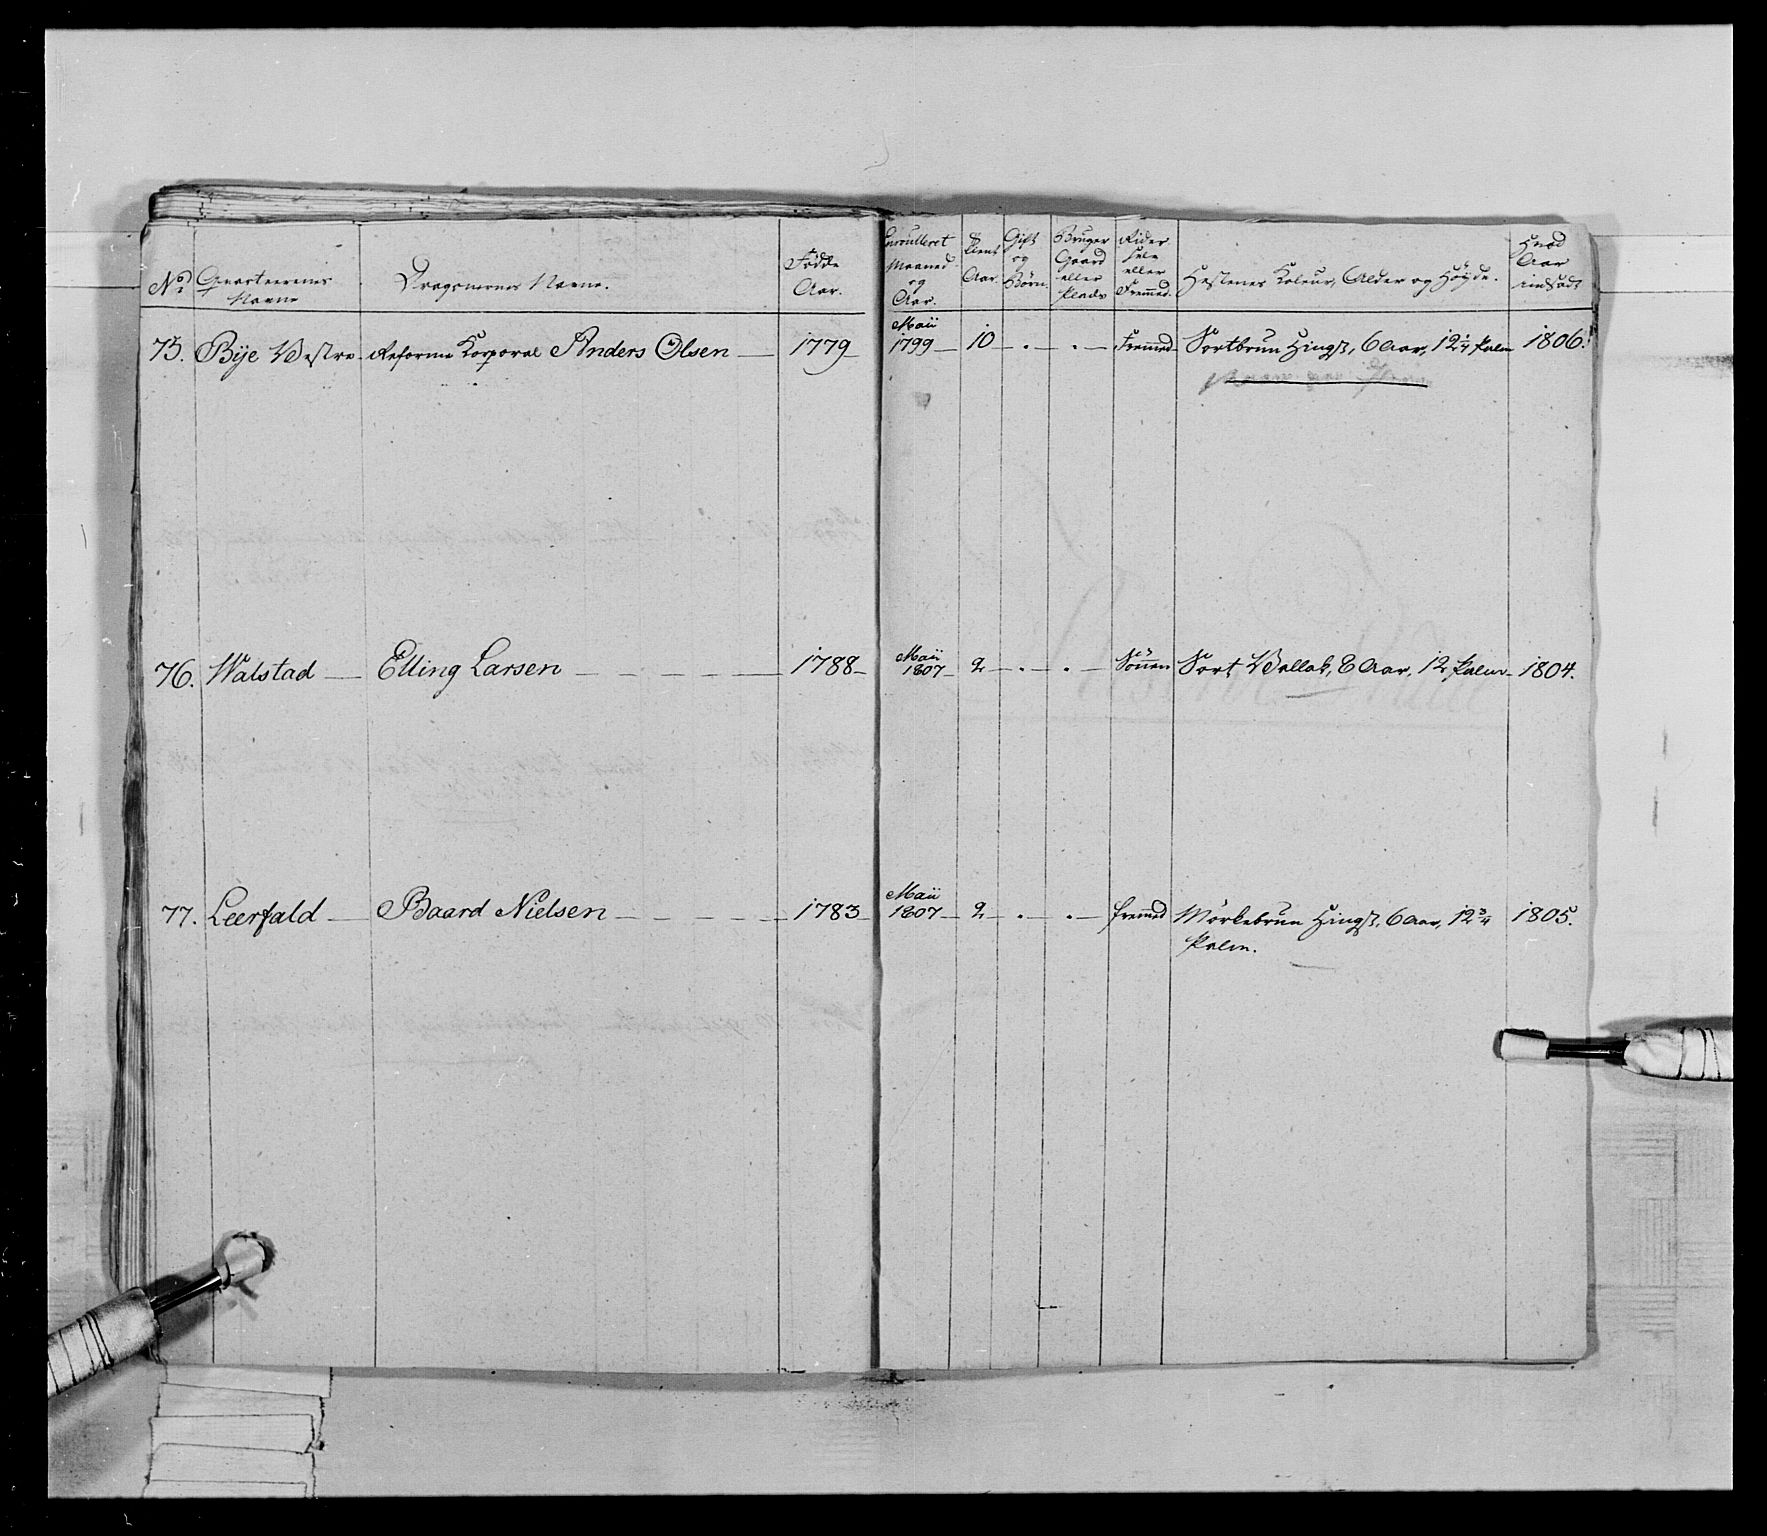 No. Quarteerenes Navne
Dragonernes Navne.
Födde Aar.
Enroulleret Maaned og Aar.
Tient Aar.
Gift og Börn.
Bruger Gaard eller Plads
Rider selv eller Fremmed.
Hestenes Koleur, Alder og Höyde.
Hvad Aar indsadt
75. Bÿe Vestre Reforme Korporal Anders Olsen 1779 Maii 1799 10 Fremmed Sortbrun Hingst, 6 Aar, 12 1/4 Palm 1806.
76. Walstad Elling Larsen 1788 Maii 1807 2 Sönnen Sort Vallak, 8 Aar, 12 Palm 1804.
77. Leerfald Baard Nielsen 1783 Maii 1807 2 fremmed Mörkebrun Hingst, 6 Aar, 12 3/4 1805.
Palm.